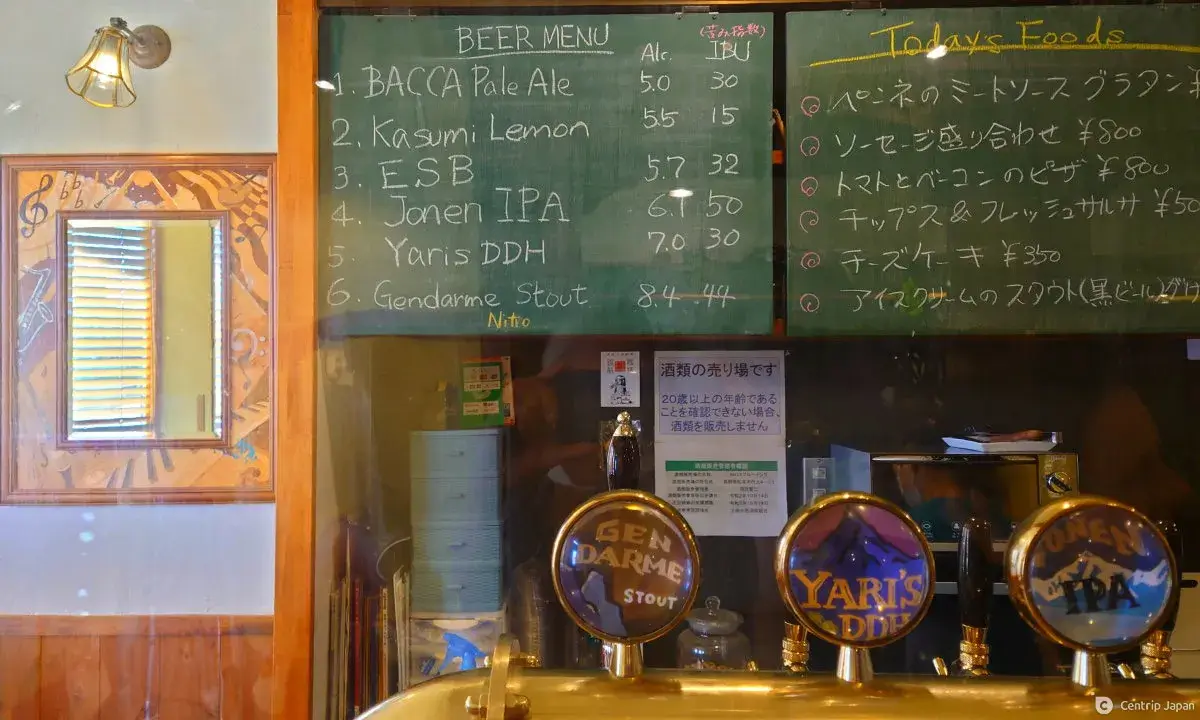 BEER MENU
(苦み指数)
Alc. IBU
1. BACCA Pale Ale 5.0 30
2. Kasumi Lemon 5.5 15
3. ESB 5.7 32
4. Jonen IPA 6.1 50
5. Yaris DDH 7.0 30
6. Gendarme Stout 8.4 44
Nitro
Today's Foods
ペンネのミートソースグラタン
ソーセージ盛り合わせ ¥800
トマトとベーコンのピザ ¥800
チップス&フレッシュサルサ ¥50
チーズケーキ ¥350
アイスクリームのスタウト(黒ビール)
酒類の売り場です
20歳以上の年齢である
ことを確認できない場合、
酒類を販売しません
GEN
DARME
STOUT
YARI'S
DDH
JONEN
IPA
Centrip Japan